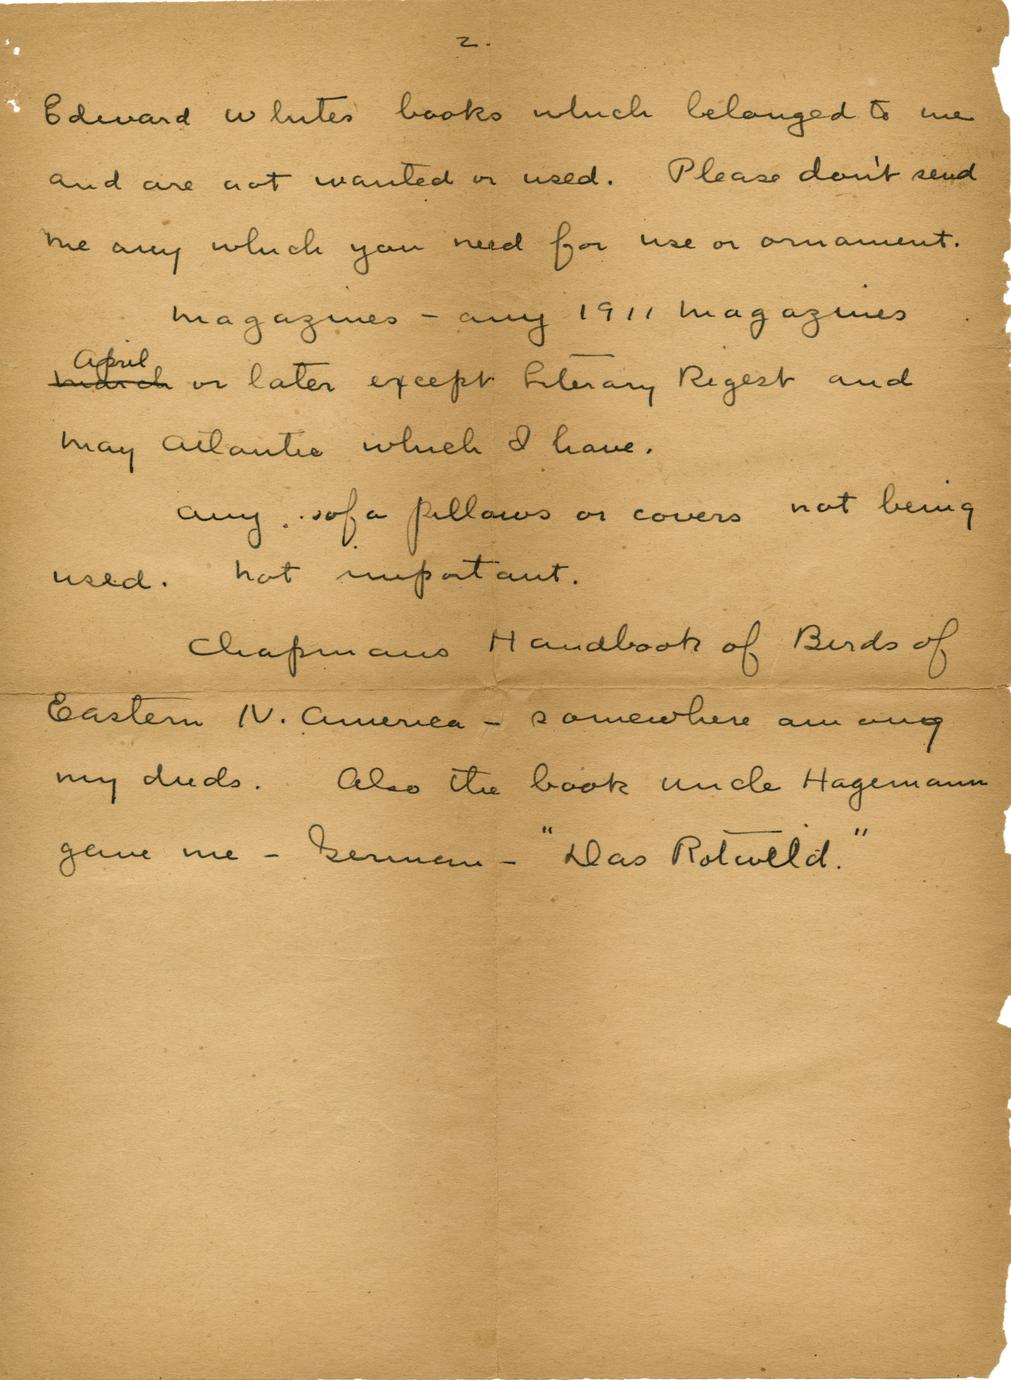 2.
Edward Whites books which belonged to me
and are not wanted or used. Please don't send
me any which you need for use or ornament.
Magazines – any 1911 magazines
April
March or later except Literary Digest and
May Atlantic which I have.
Any sofa pillows or covers not being
used. Not important.
Chapmans Handbook of Birds of
Eastern N. America – somewhere among
my duds. Also the book Uncle Hagemann
gave me – German – "Das Rotwild."